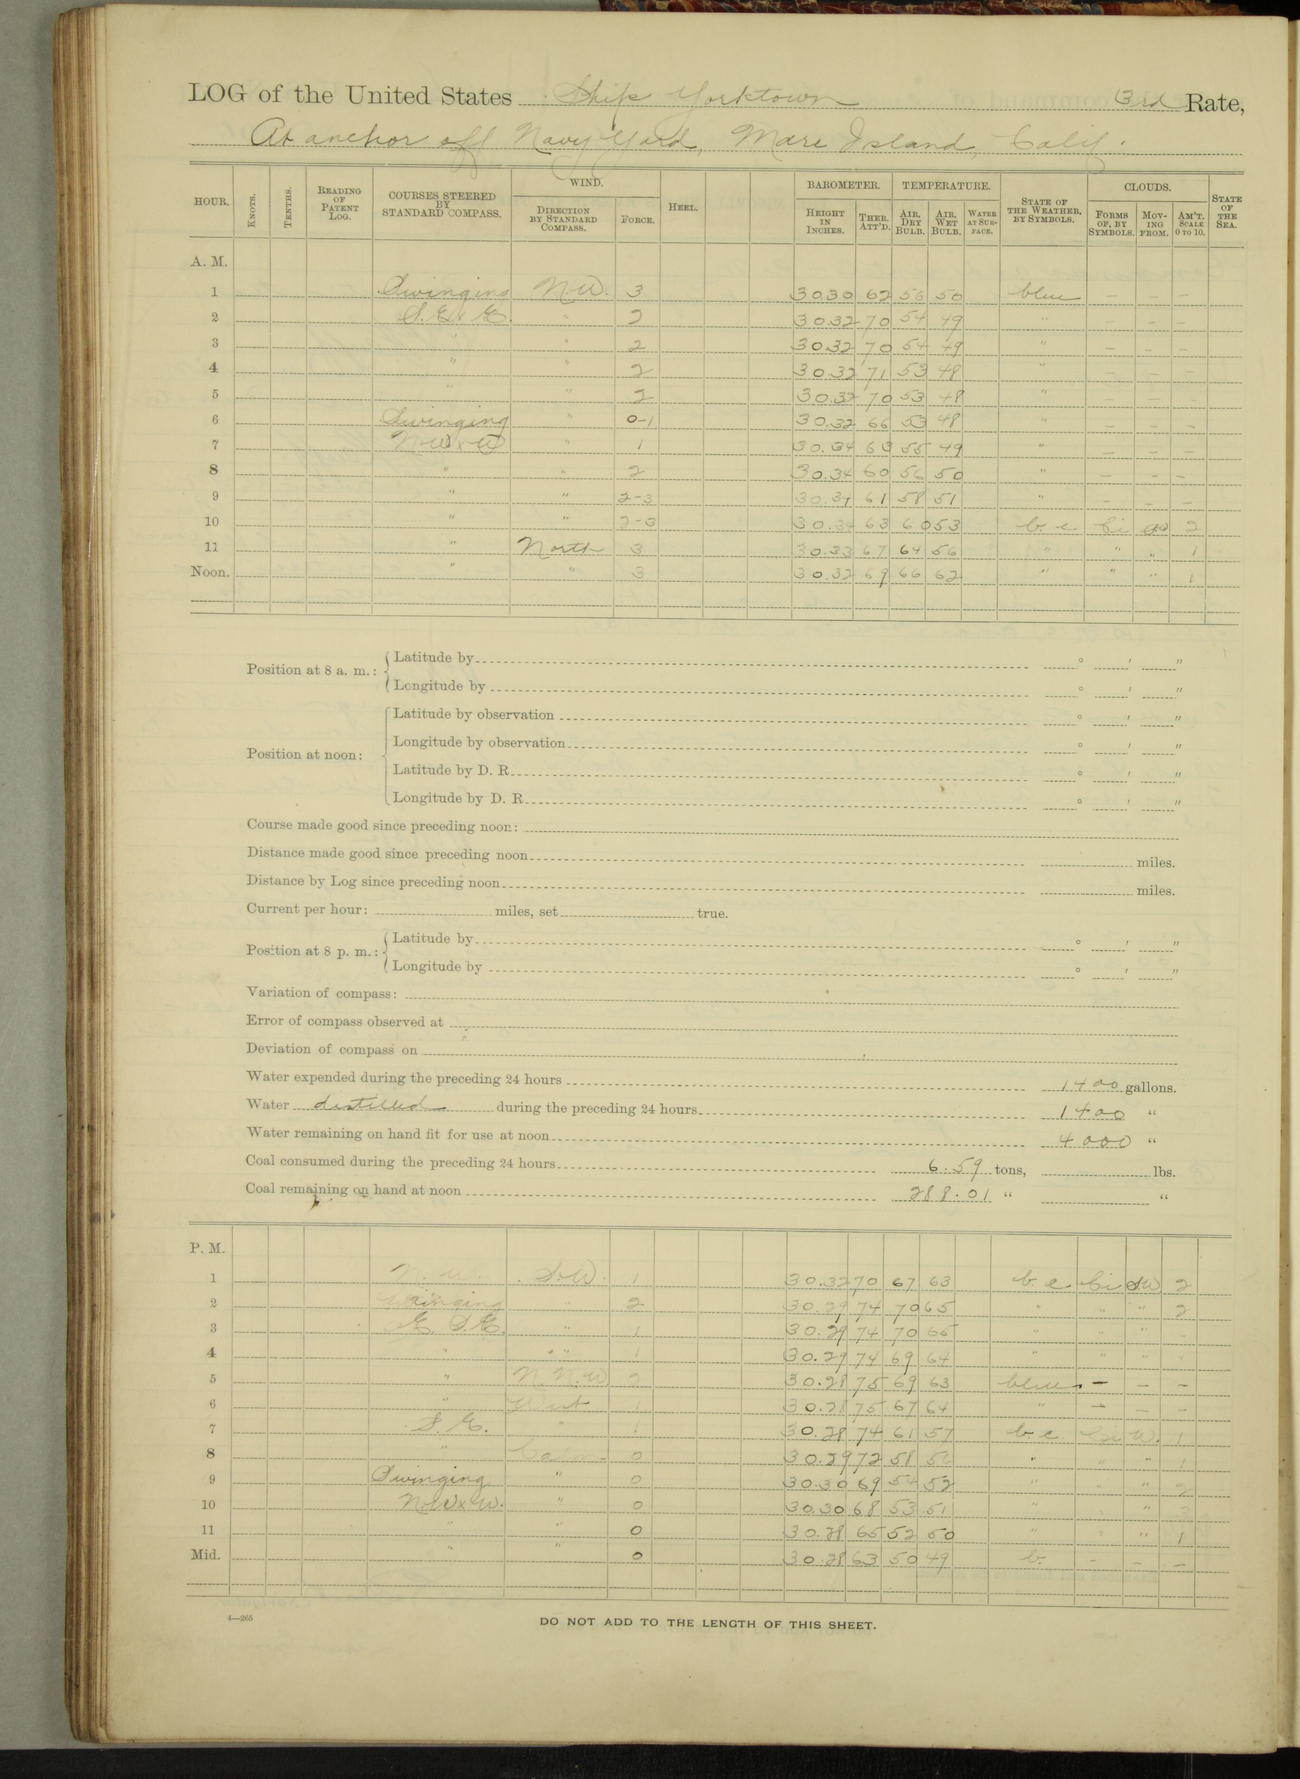 LOG of the United States Ship Yorktown 3rd Rate,
At anchor off Navy Yard, Mare Island, Calif.
HOUR. KNOTS. TENTHS. READING OF PATENT LOG. COURSES STEERED BY STANDARD COMPASS. WIND. DIRECTION BY STANDARD COMPASS. FORCE. HEEL. BAROMETER. HEIGHT IN INCHES. THER. ATT'D. TEMPERATURE. AIR, DRY BULB. AIR, WET BULB. WATER AT SURFACE. STATE OF THE WEATHER, BY SYMBOLS. CLOUDS. FORMS OF, BY SYMBOLS. MOVING FROM. AM'T. SCALE 0 TO 10. STATE OF THE SEA.
A. M.
1 Swinging N.W. 3 30.30 62 56 50 blue — — —
2 S.E.xE. " 2 30.32 70 54 49 " — — —
3 " " 2 30.32 70 54 49 " — — —
4 " " 2 30.32 71 53 48 " — — —
5 " " 2 30.32 70 53 48 " — — —
6 Swinging " 0-1 30.32 66 53 48 " — — —
7 N.W.xW " 1 30.34 63 55 49 " — — —
8 " " 2 30.34 60 56 50 " — — —
9 " " 2-3 30.34 61 58 51 " — — —
10 " " 2-3 30.34 63 60 53 b.c. Ci 2
11 " North 3 30.33 67 64 56 " " " 1
Noon. " " 3 30.32 69 66 62 " " " 1
Position at 8 a. m.: Latitude by ° ' "
Longitude by ° ' "
Position at noon: Latitude by observation ° ' "
Longitude by observation ° ' "
Latitude by D. R. ° ' "
Longitude by D. R. ° ' "
Course made good since preceding noon:
Distance made good since preceding noon miles.
Distance by Log since preceding noon miles.
Current per hour: miles, set true.
Position at 8 p. m.: Latitude by ° ' "
Longitude by ° ' "
Variation of compass:
Error of compass observed at
Deviation of compass on
Water expended during the preceding 24 hours 1400 gallons.
Water distilled during the preceding 24 hours 1400 "
Water remaining on hand fit for use at noon 4000 "
Coal consumed during the preceding 24 hours 6.59 tons, lbs.
Coal remaining on hand at noon 288.01 " "
P. M.
1 N.W. S.W. 1 30.32 70 67 63 b.c. Ci SW 2
2 Swinging " 2 30.29 74 70 65 " " " 2
3 E.S.E. " 1 30.29 74 70 65 " " "
4 " " 1 30.29 74 69 64 " " "
5 " N.N.W 2 30.28 75 69 63 blue — — —
6 " West 1 30.28 75 67 64 " — — —
7 S.E. " 1 30.28 74 61 57 b.c. Ci W. 1
8 " Calm 0 30.29 72 58 56 " " " 1
9 Swinging " 0 30.30 69 54 52 " " " 2
10 N.W.xW. " 0 30.30 68 53 51 " "
11 " " 0 30.28 65 52 50 " " 1
Mid. " " 0 30.28 63 50 49 b. — — —
4—265
DO NOT ADD TO THE LENGTH OF THIS SHEET.